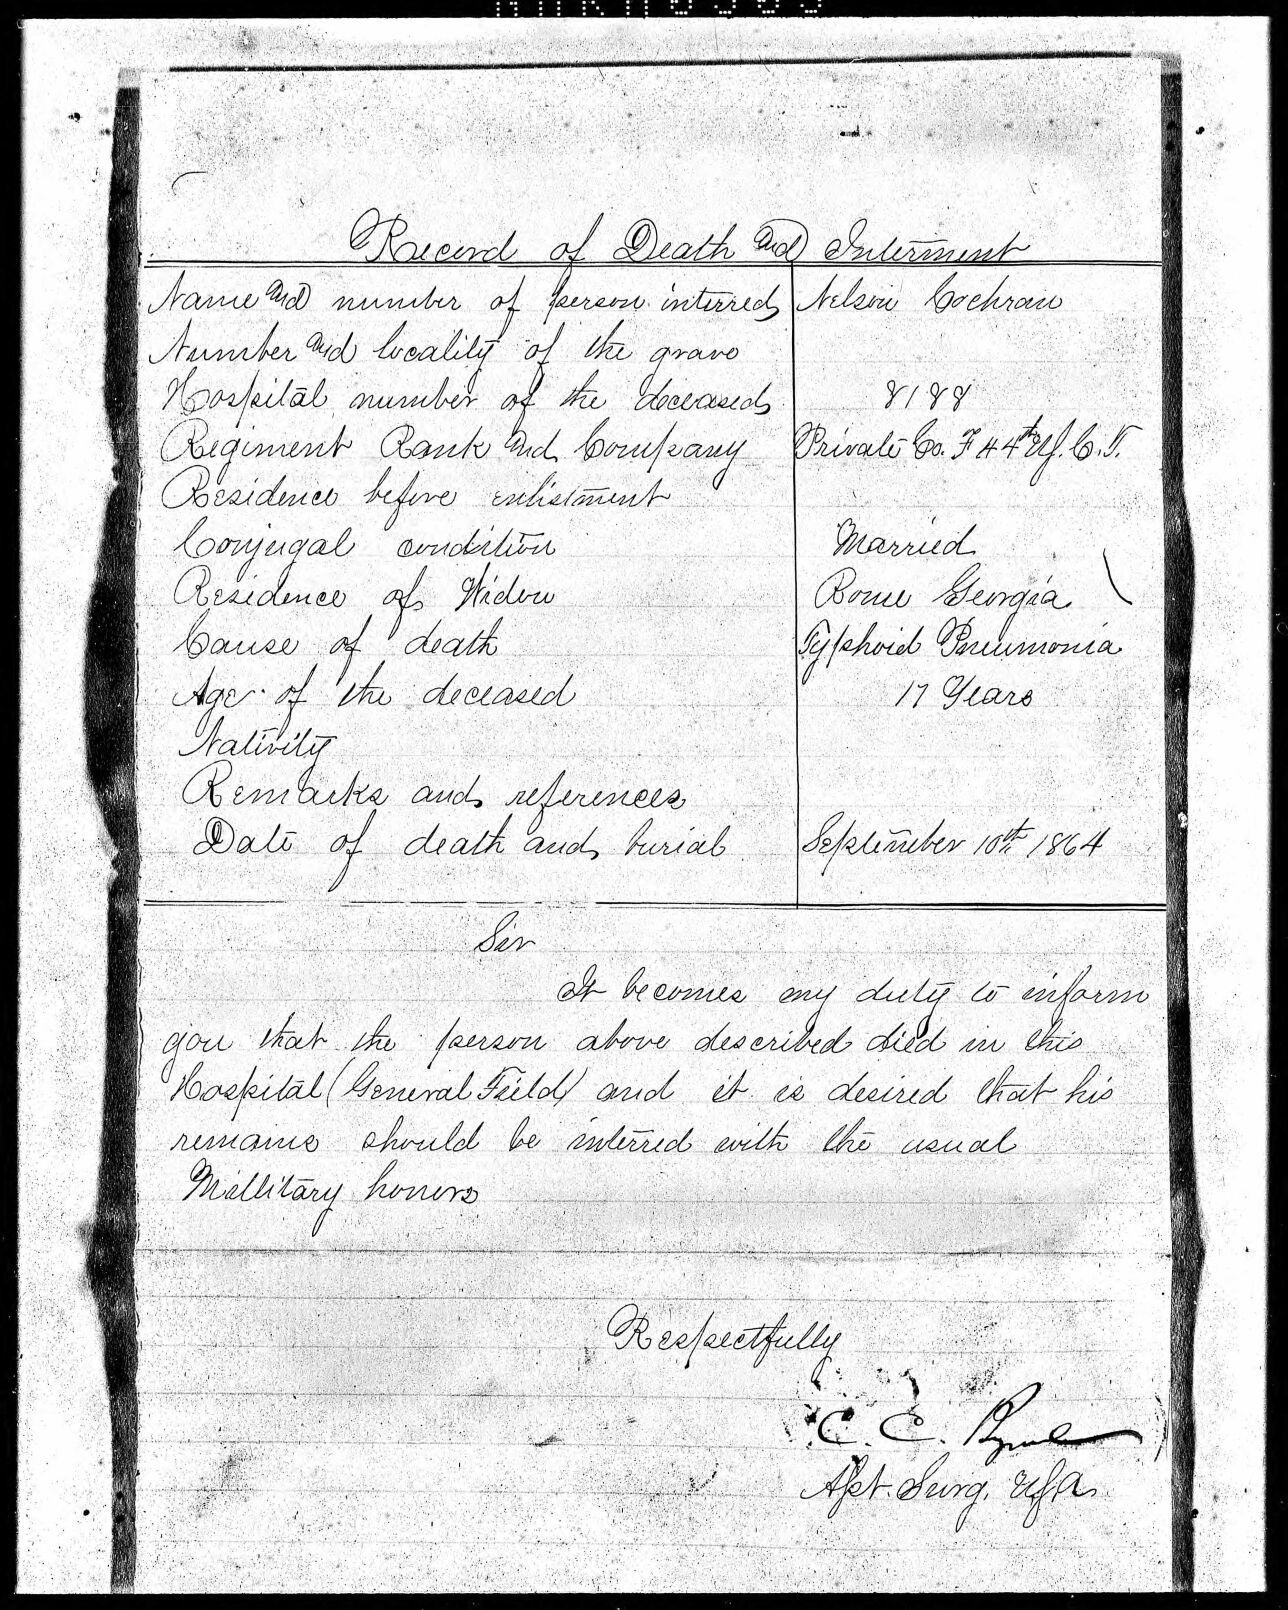 Record of Death and Interment
Name and number of person interred Nelson Cochran
Number and locality of the grave
Hospital number of the deceased 8188
Regiment Rank and Company Private Co. F 44th U.S.C.T.
Residence before enlistment
Conjugal condition Married
Residence of Widow Rome Georgia
Cause of death Typhoid Pneumonia
Age of the deceased 17 Years
Nativity
Remarks and references
Date of death and burial September 10th 1864
Sir
It becomes my duty to inform
you that the person above described died in this
Hospital (General Field) and it is desired that his
remains should be interred with the usual
Millitary honors
Respectfully
C. C. Byrne
Asst. Surg. USA.